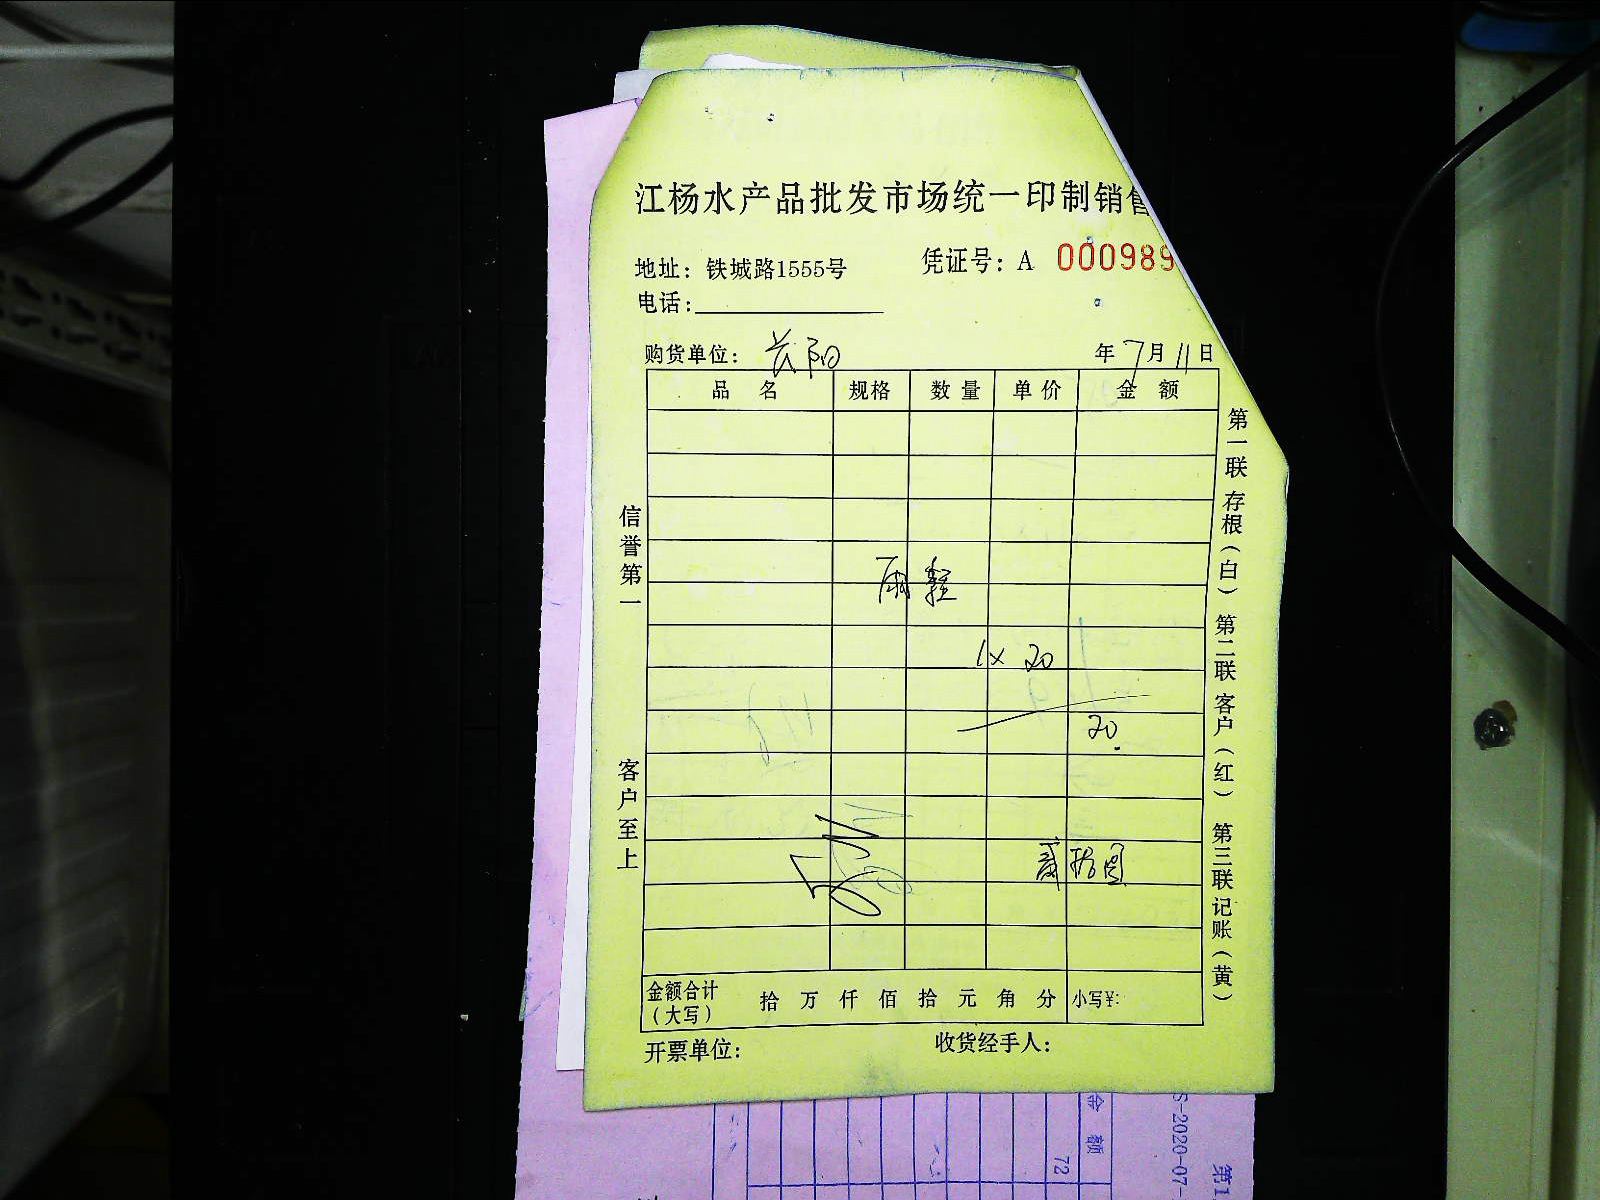 江杨水产品批发市场统一印制销售
地址：铁城路1555号
凭证号：A 000989
电话：
购货单位：长阳
年7月11日
品名 规格 数量 单价 金额
雨鞋
1× 20
20.
贰拾圆
金额合计（大写） 拾 万 仟 佰 拾 元 角 分 小写¥:
开票单位：
收货经手人：
信誉第一 客户至上
第一联 存根（白） 第二联 客户（红） 第三联 记账（黄）
金额
72
S-2020-07-
第1